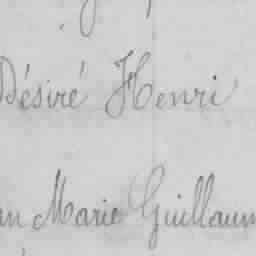 Désiré Henri
an Marie Guillaum